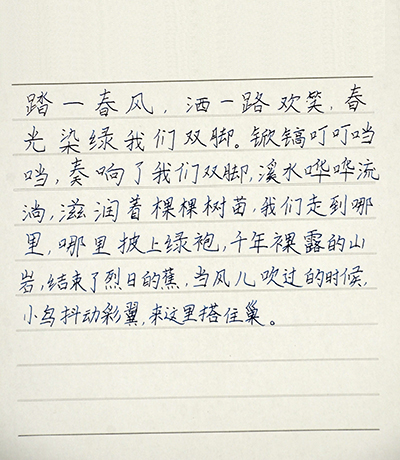 踏一春风，洒一路欢笑，春
光染绿我们双脚。锨镐叮叮当
当，奏响了我们双脚，溪水哗哗流
淌，滋润着棵棵树苗，我们走到哪
里，哪里披上绿袍，千年裸露的山
岩，结束了烈日的蕉，当风儿吹过的时候，
小鸟抖动彩翼，来这里搭住巢。